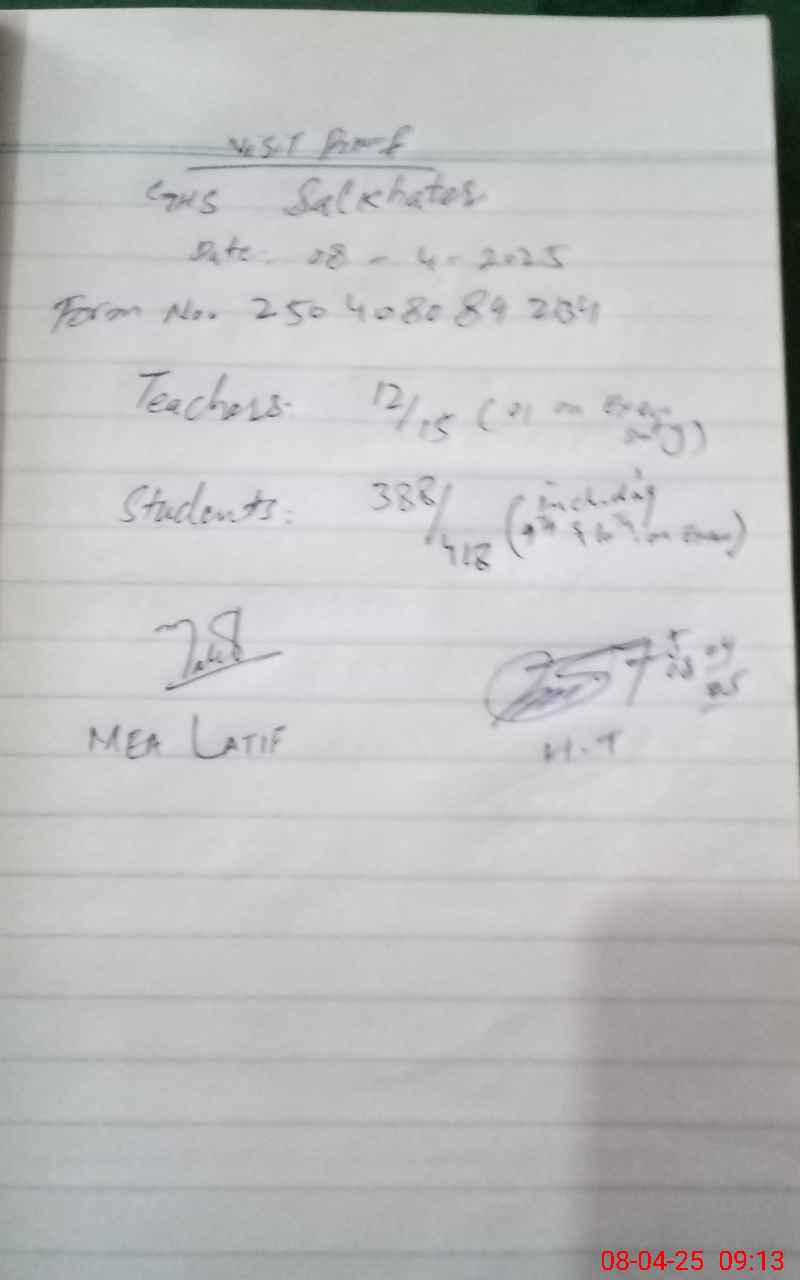 Visit Proof
GHS Salkhater
Date: 08 - 4 - 2025
Form No. 250408089234
Teachers: 12/15 (01 on Exam
duty)
Students: 388/418 (including
9th & 10th on Exam)
MEA LATIF
H.T
08-04-25 09:13